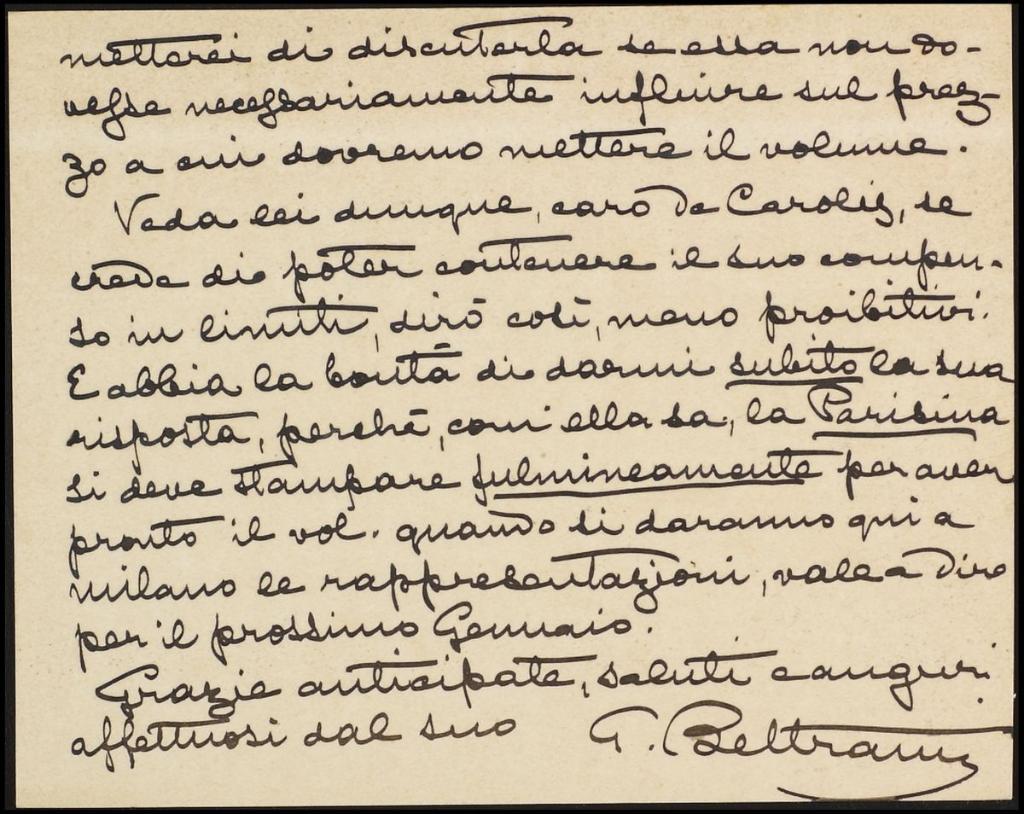 metterei di discuterla se essa non do-
vesse necessariamente influire sul prez-
zo a cui dovremo mettere il volume.
Veda lei dunque, caro De Carolis, se
crede di poter contenere il suo compen-
so in limiti, dirò così, meno proibitivi.
E abbia la bontà di darmi subito la sua
risposta, perchè, com'ella sa, la Parisina
si deve stampare fulmineamente per aver
pronto il vol. quando si daranno qui a
Milano le rappresentazioni, vale a dire
per il prossimo Gennaio.
Grazie anticipate, saluti e auguri
affettuosi dal suo G. Beltrami